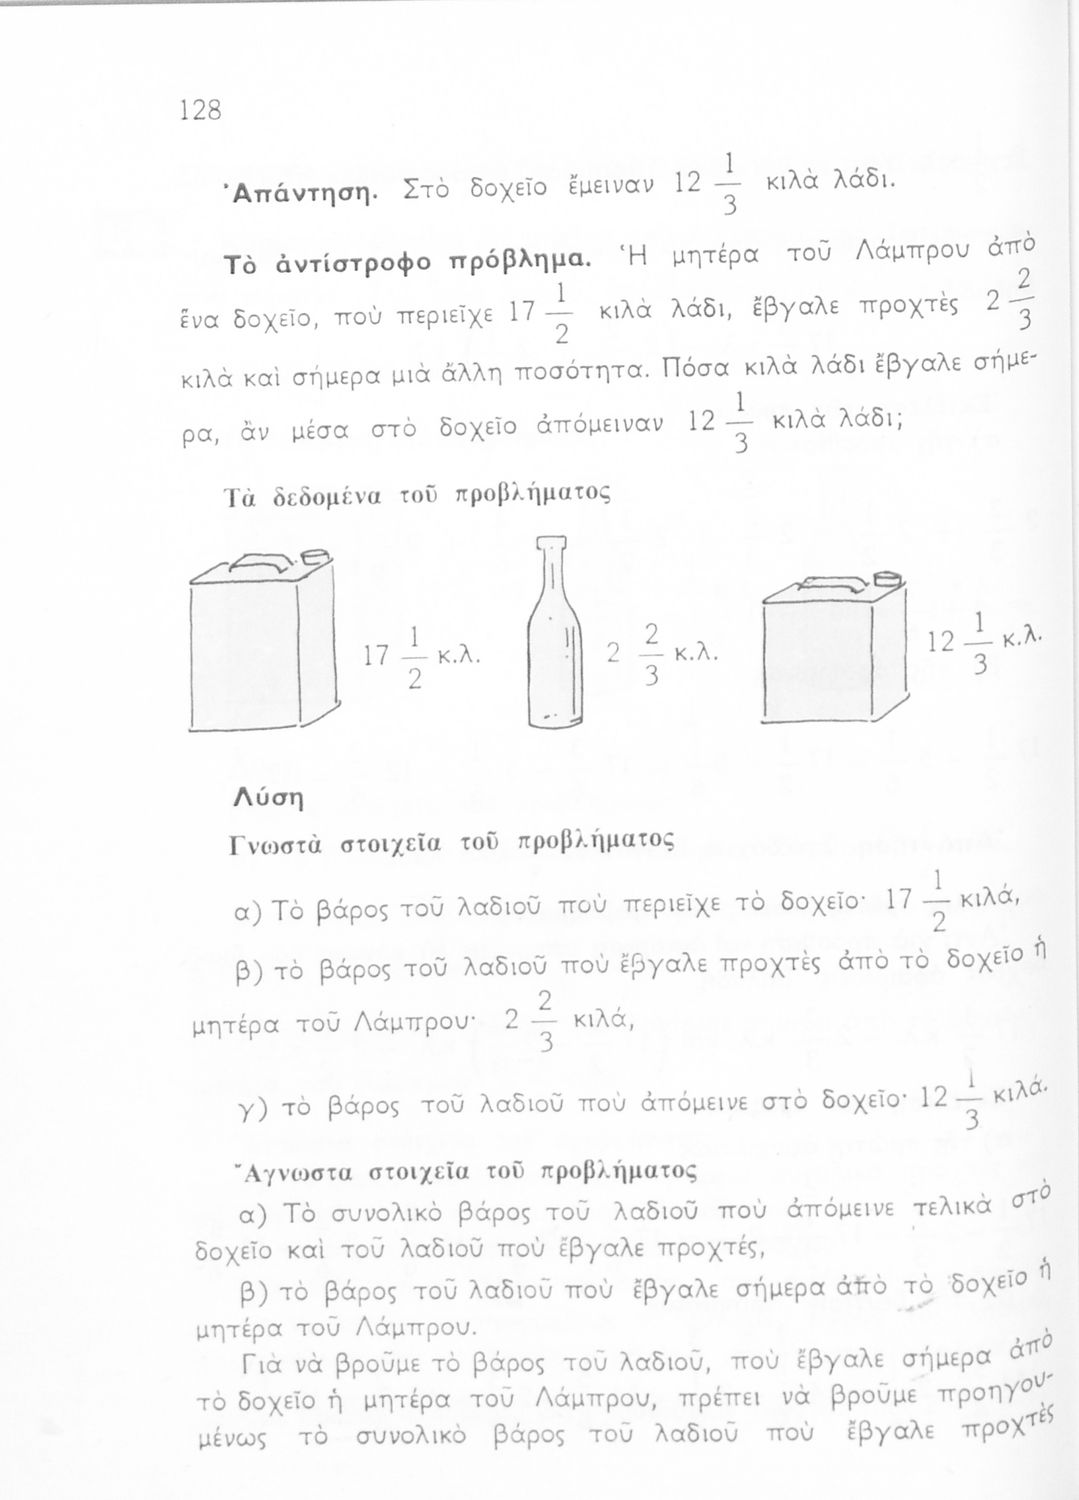 128
Ἀπάντηση. Στὸ δοχεῖο ἔμειναν 12 1/3 κιλὰ λάδι.
Τὸ ἀντίστροφο πρόβλημα. Ἡ μητέρα τοῦ Λάμπρου ἀπὸ
ἕνα δοχεῖο, ποὺ περιεῖχε 17 1/2 κιλὰ λάδι, ἔβγαλε προχτὲς 2 2/3
κιλὰ καὶ σήμερα μιὰ ἄλλη ποσότητα. Πόσα κιλὰ λάδι ἔβγαλε σήμε-
ρα, ἂν μέσα στὸ δοχεῖο ἀπόμειναν 12 1/3 κιλὰ λάδι;
Τὰ δεδομένα τοῦ προβλήματος
17 1/2 κ.λ. 2 2/3 κ.λ. 12 1/3 κ.λ.
Λύση
Γνωστὰ στοιχεῖα τοῦ προβλήματος
α) Τὸ βάρος τοῦ λαδιοῦ ποὺ περιεῖχε τὸ δοχεῖο· 17 1/2 κιλά,
β) τὸ βάρος τοῦ λαδιοῦ ποὺ ἔβγαλε προχτὲς ἀπὸ τὸ δοχεῖο ἡ
μητέρα τοῦ Λάμπρου· 2 2/3 κιλά,
γ) τὸ βάρος τοῦ λαδιοῦ ποὺ ἀπόμεινε στὸ δοχεῖο· 12 1/3 κιλά.
Ἄγνωστα στοιχεῖα τοῦ προβλήματος
α) Τὸ συνολικὸ βάρος τοῦ λαδιοῦ ποὺ ἀπόμεινε τελικὰ στὸ
δοχεῖο καὶ τοῦ λαδιοῦ ποὺ ἔβγαλε προχτές,
β) τὸ βάρος τοῦ λαδιοῦ ποὺ ἔβγαλε σήμερα ἀπὸ τὸ δοχεῖο ἡ
μητέρα τοῦ Λάμπρου.
Γιὰ νὰ βροῦμε τὸ βάρος τοῦ λαδιοῦ, ποὺ ἔβγαλε σήμερα ἀπὸ
τὸ δοχεῖο ἡ μητέρα τοῦ Λάμπρου, πρέπει νὰ βροῦμε προηγου-
μένως τὸ συνολικὸ βάρος τοῦ λαδιοῦ ποὺ ἔβγαλε προχτὲς